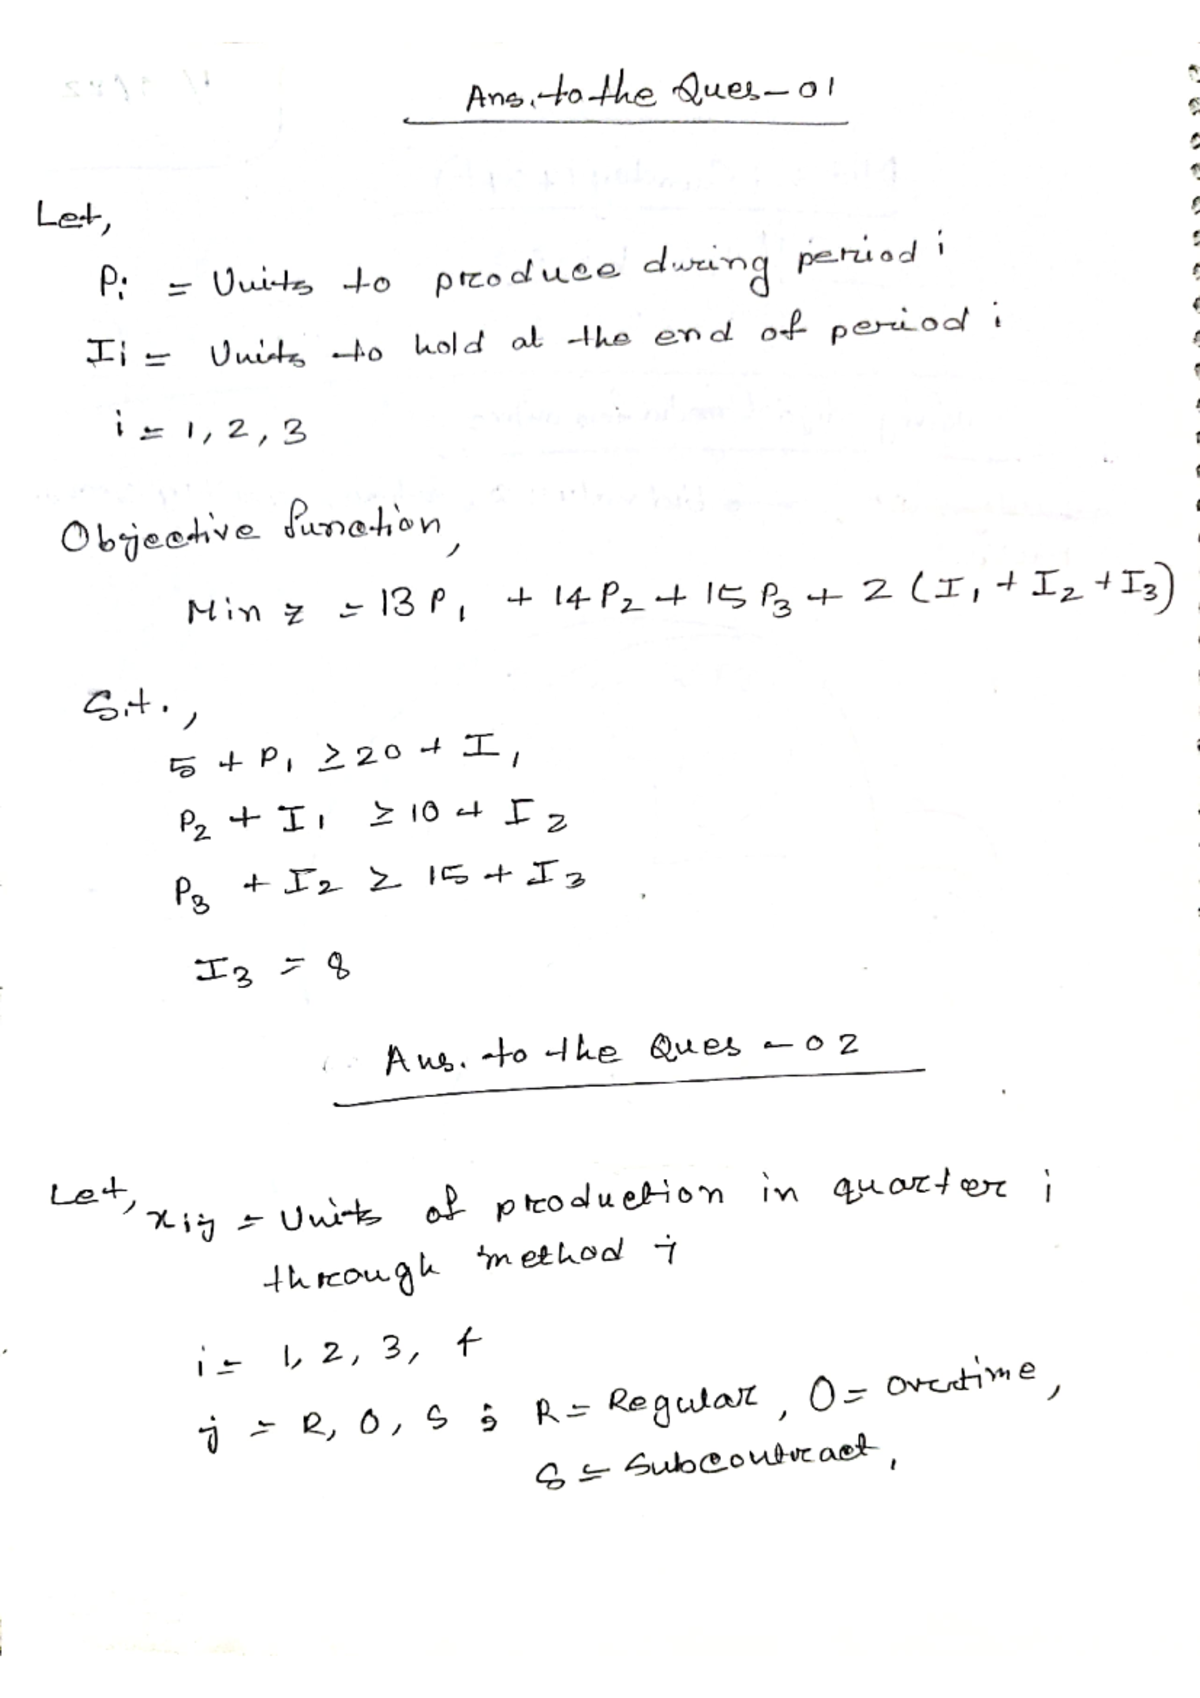 Ans. to the Ques - 01
Let,
Pi = Units to produce during period i
Ii = Units to hold at the end of period i
i = 1, 2, 3
Objective function,
Min z = 13 P1 + 14 P2 + 15 P3 + 2 (I1 + I2 + I3)
S.t.,
5 + P1 ≥ 20 + I1
P2 + I1 ≥ 10 + I2
P3 + I2 ≥ 15 + I3
I3 = 8
Ans. to the Ques - 02
Let,
xij = Units of production in quarter i
through method j
i = 1, 2, 3, 4
j = R, O, S ; R = Regular, O = Overtime,
S = Subcontract,